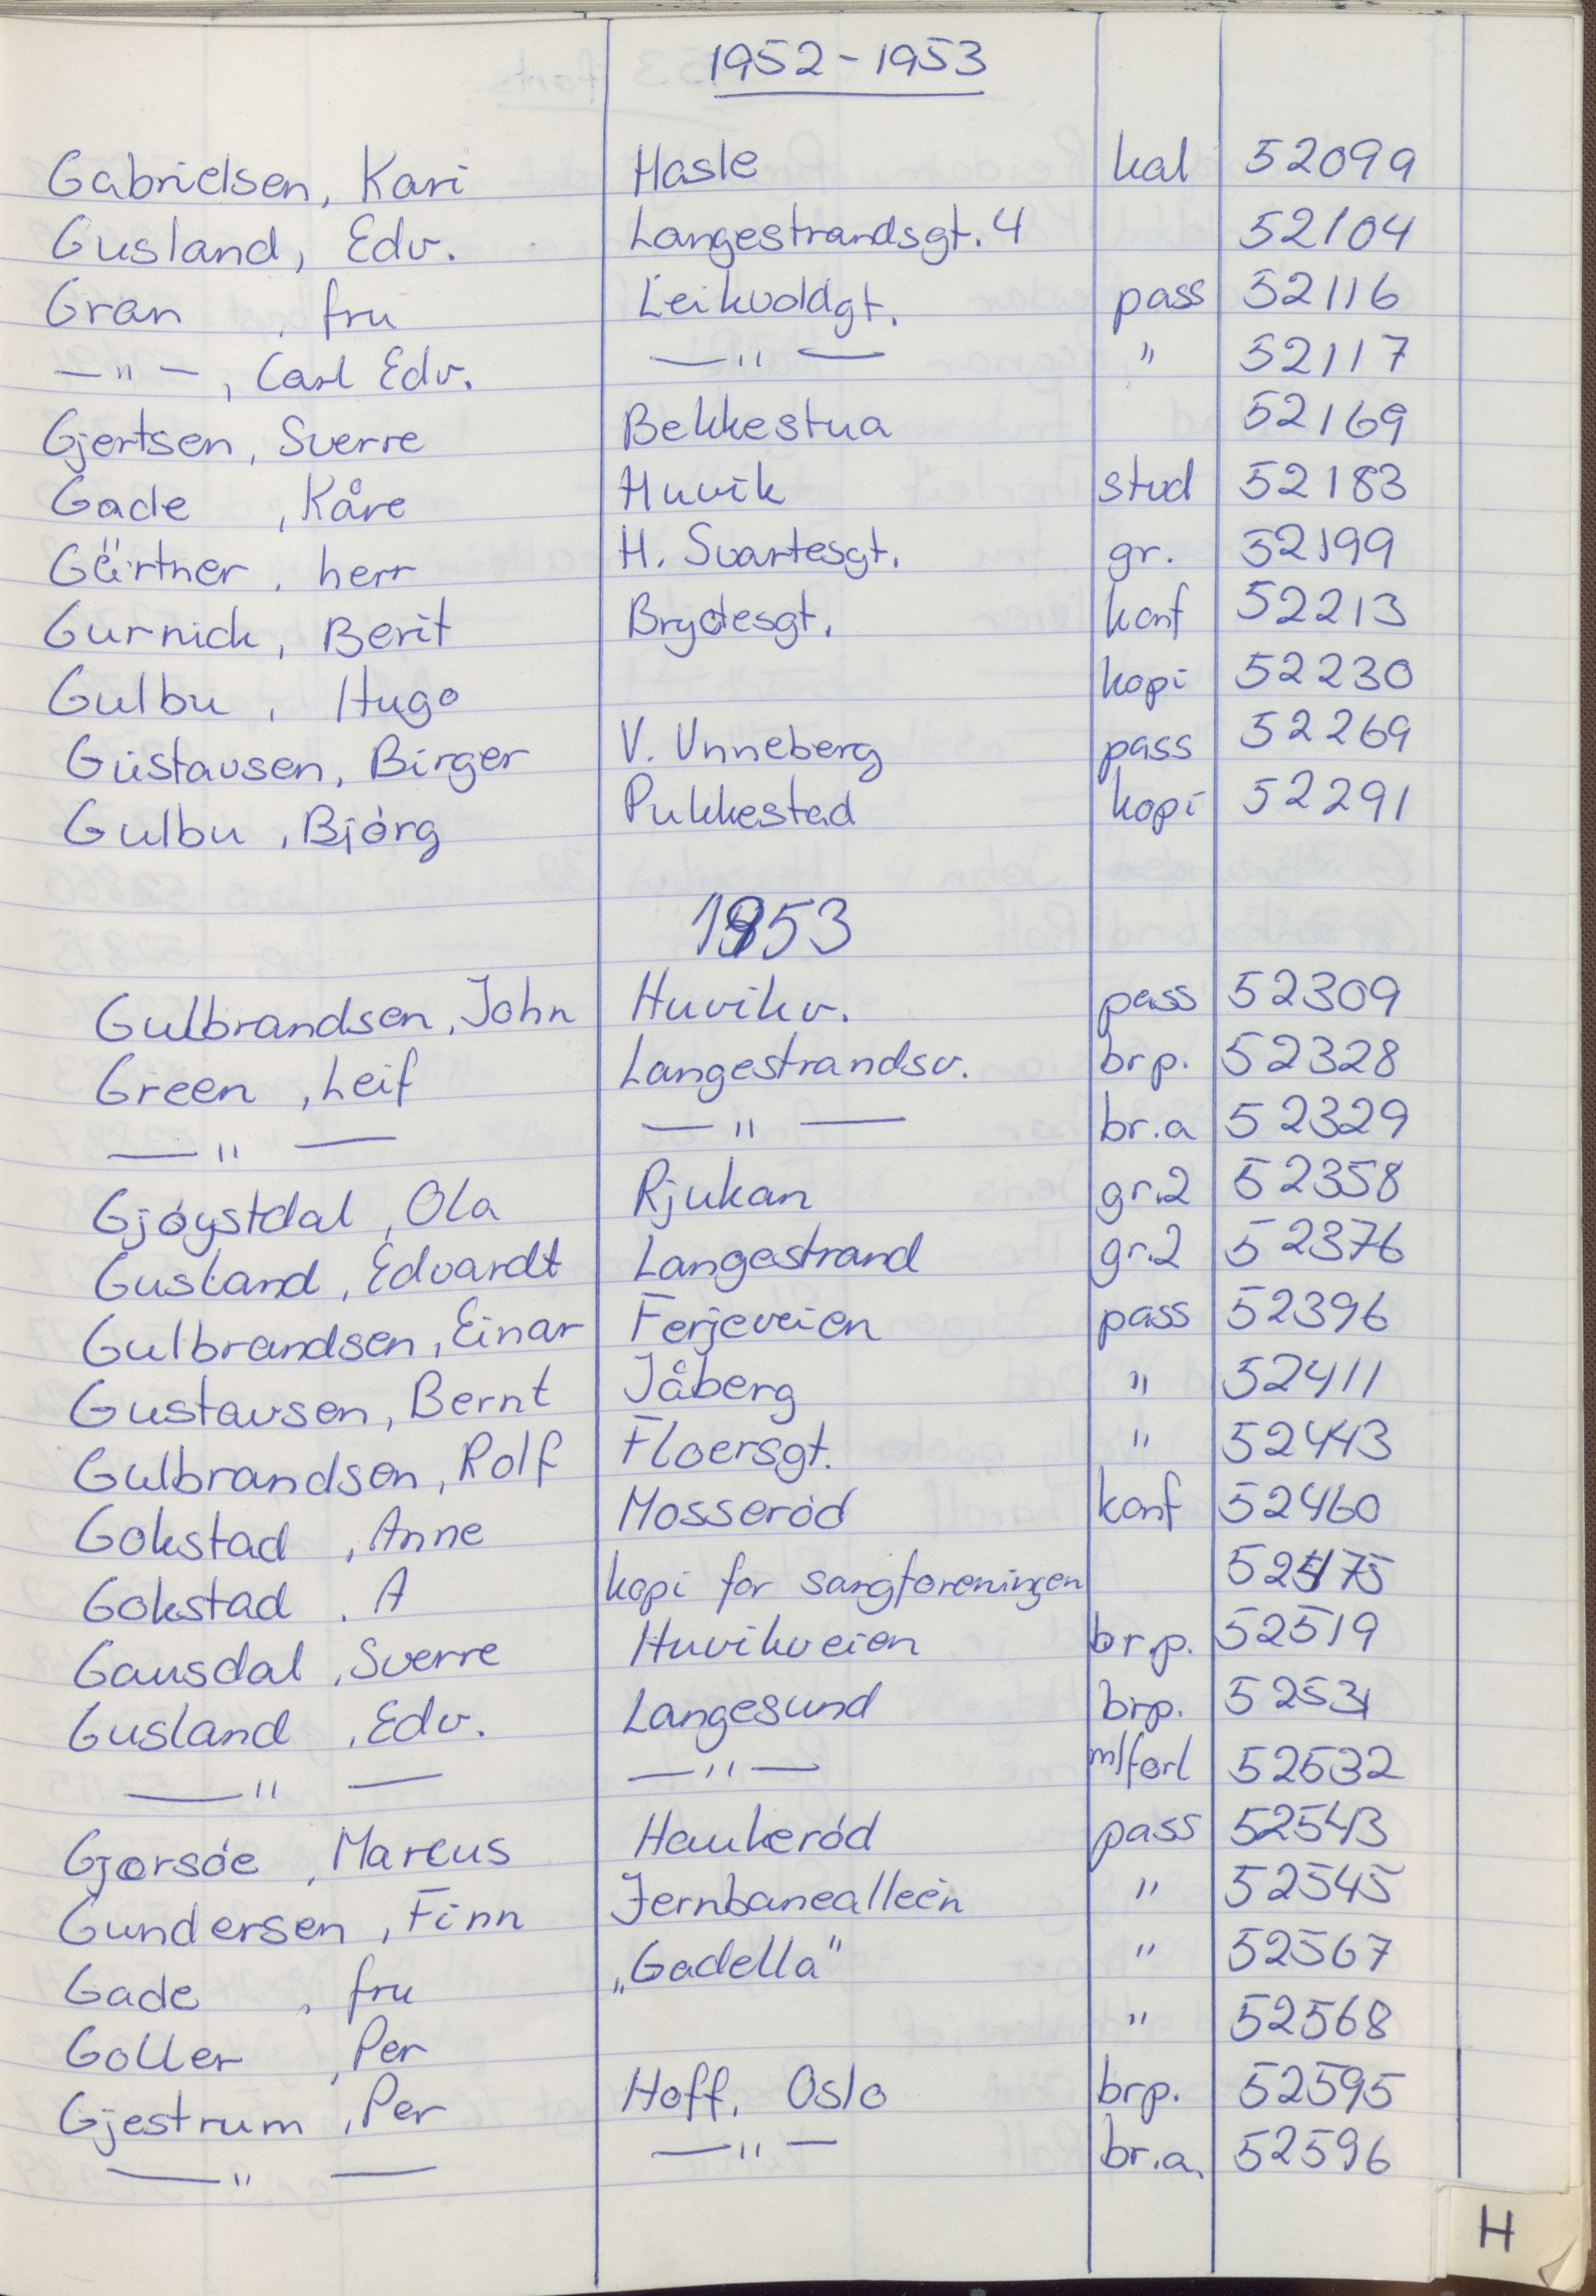 1952 - 1953
Gabrielsen, Kari Hasle kal 52099
Gusland, Edv. Langestrandsgt. 4 52104
Gran , fru Leikvoldgt. pass 52116
— " — , Carl Edv. — " — " 52117
Gjertsen, Sverre Bekkestua 52169
Gade , Kåre Huvik stud 52183
Gärtner , herr H. Svartesgt. gr. 52199
Gurnick, Berit Brydesgt. konf 52213
Gulbu , Hugo kopi 52230
Gustavsen, Birger V. Unneberg pass 52269
Gulbu , Bjórg Pukkestad kopi 52291
1953
Gulbrandsen, John Huvikv. pass 52309
Green , Leif Langestrandsv. brp. 52328
— " — — " — br.a 52329
Gjóystdal , Ola Rjukan gr.2 52358
Gusland , Edvardt Langestrand gr.2 52376
Gulbrandsen, Einar Ferjeveien pass 52396
Gustavsen, Bernt Jåberg " 52411
Gulbrandsen, Rolf Floersgt. " 52443
Gokstad , Anne Mosseród konf 52460
Gokstad , A kopi for sangforeningen 52475
Gausdal , Sverre Huvikveien br.p. 52519
Gusland , Edv. Langesund brp. 52531
— " — — " — m/forl 52532
Gjorsóe , Marcus Haukeród pass 52543
Gundersen , Finn Jernbanealleén " 52545
Gade , fru „Gadella" " 52567
Goller , Per " 52568
Gjestrum , Per Hoff, Oslo brp. 52595
— " — — " — br.a. 52596
H